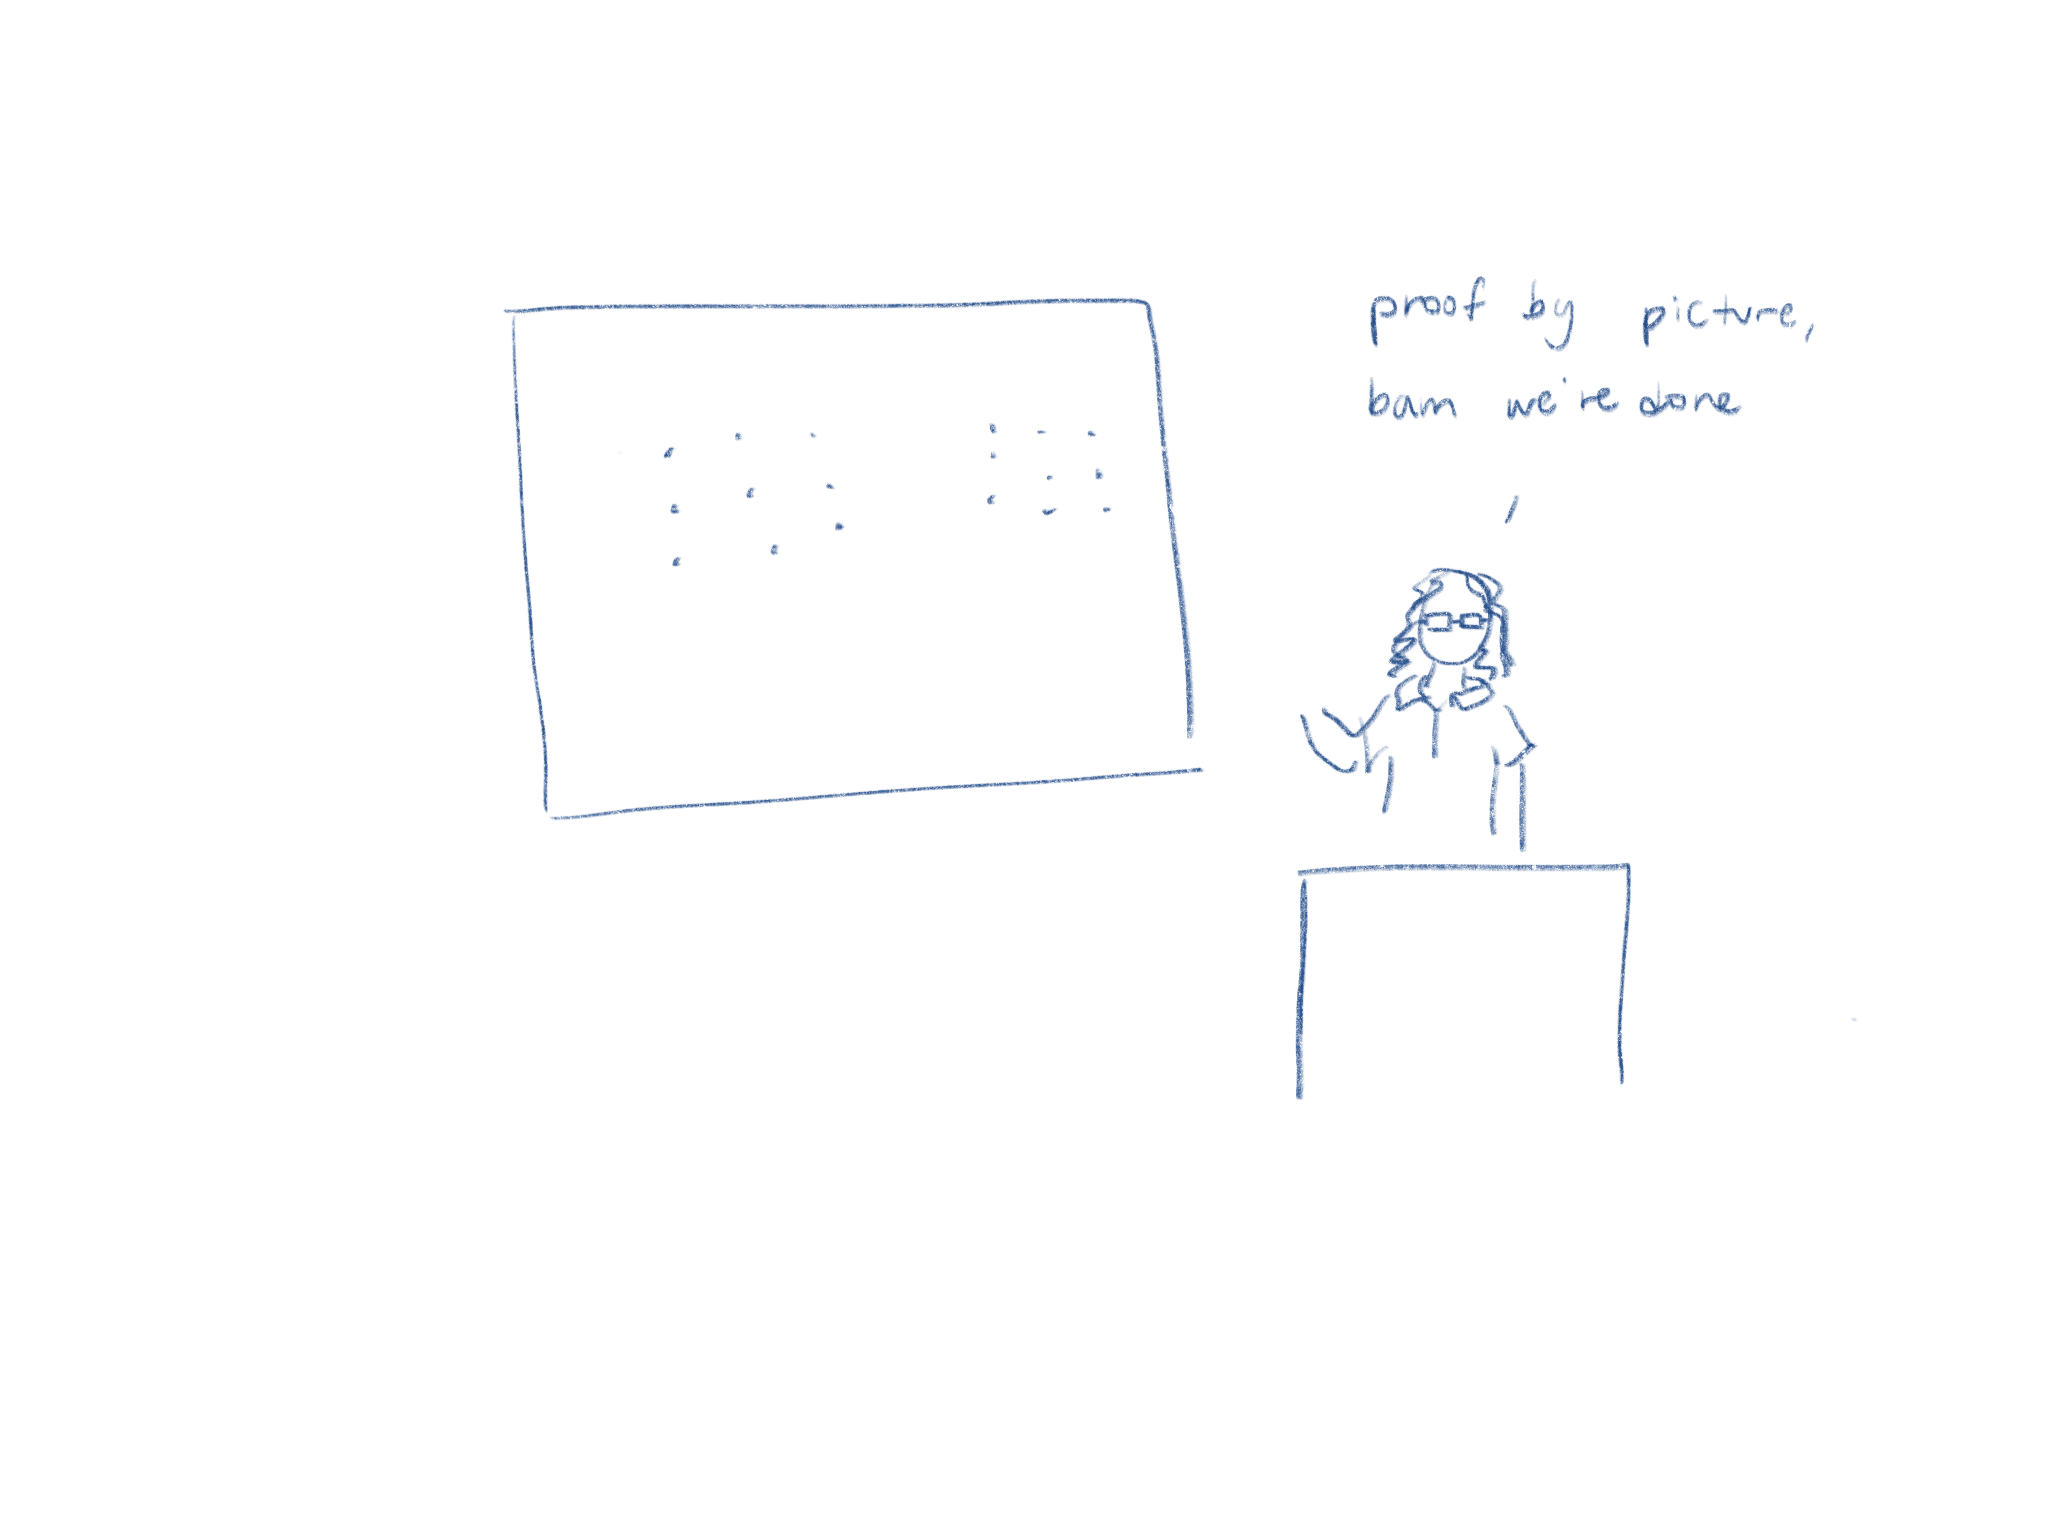 proof by picture,
bam we're done